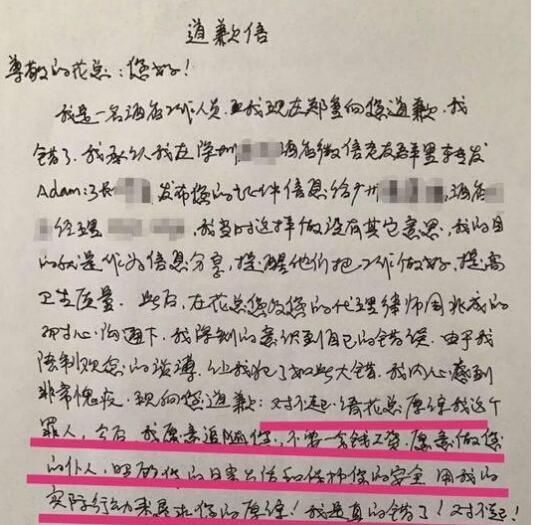 道歉信
尊敬的花总：您好！
我是一名酒店工作人员，我现在郑重向您道歉，我
错了，我承认我在深圳 酒店微信老友群里转发
Adam 发布您的证件信息给广州 酒店
经理 ，我当时这样做没有其它意思，我的目
的就是作为信息分享，提醒他们把工作做好，提高
卫生质量。此后，在花总您及您的代理律师周兆成的
耐心沟通下，我深刻的意识到自己的错误。由于我
法制观念的淡薄，让我犯了如此大错。我内心感到
非常愧疚，现向您道歉：对不起！请花总原谅我这个
罪人，今后，我愿意追随您，不要一分钱工资，愿意做您
的仆人，照顾您的日常生活和保护您的安全，用我的
实际行动来寻求您的原谅！我是真的错了！对不起！